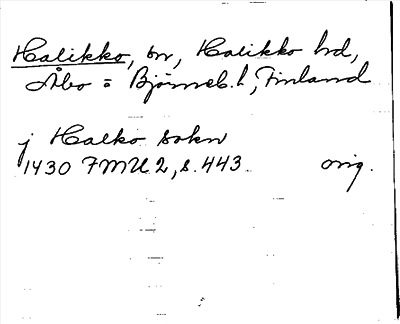 Halikko, sn, Halikko hd,
Åbo = Björneb. l, Finland
j Halko sokn
1430 FMU 2, s. 443. orig.